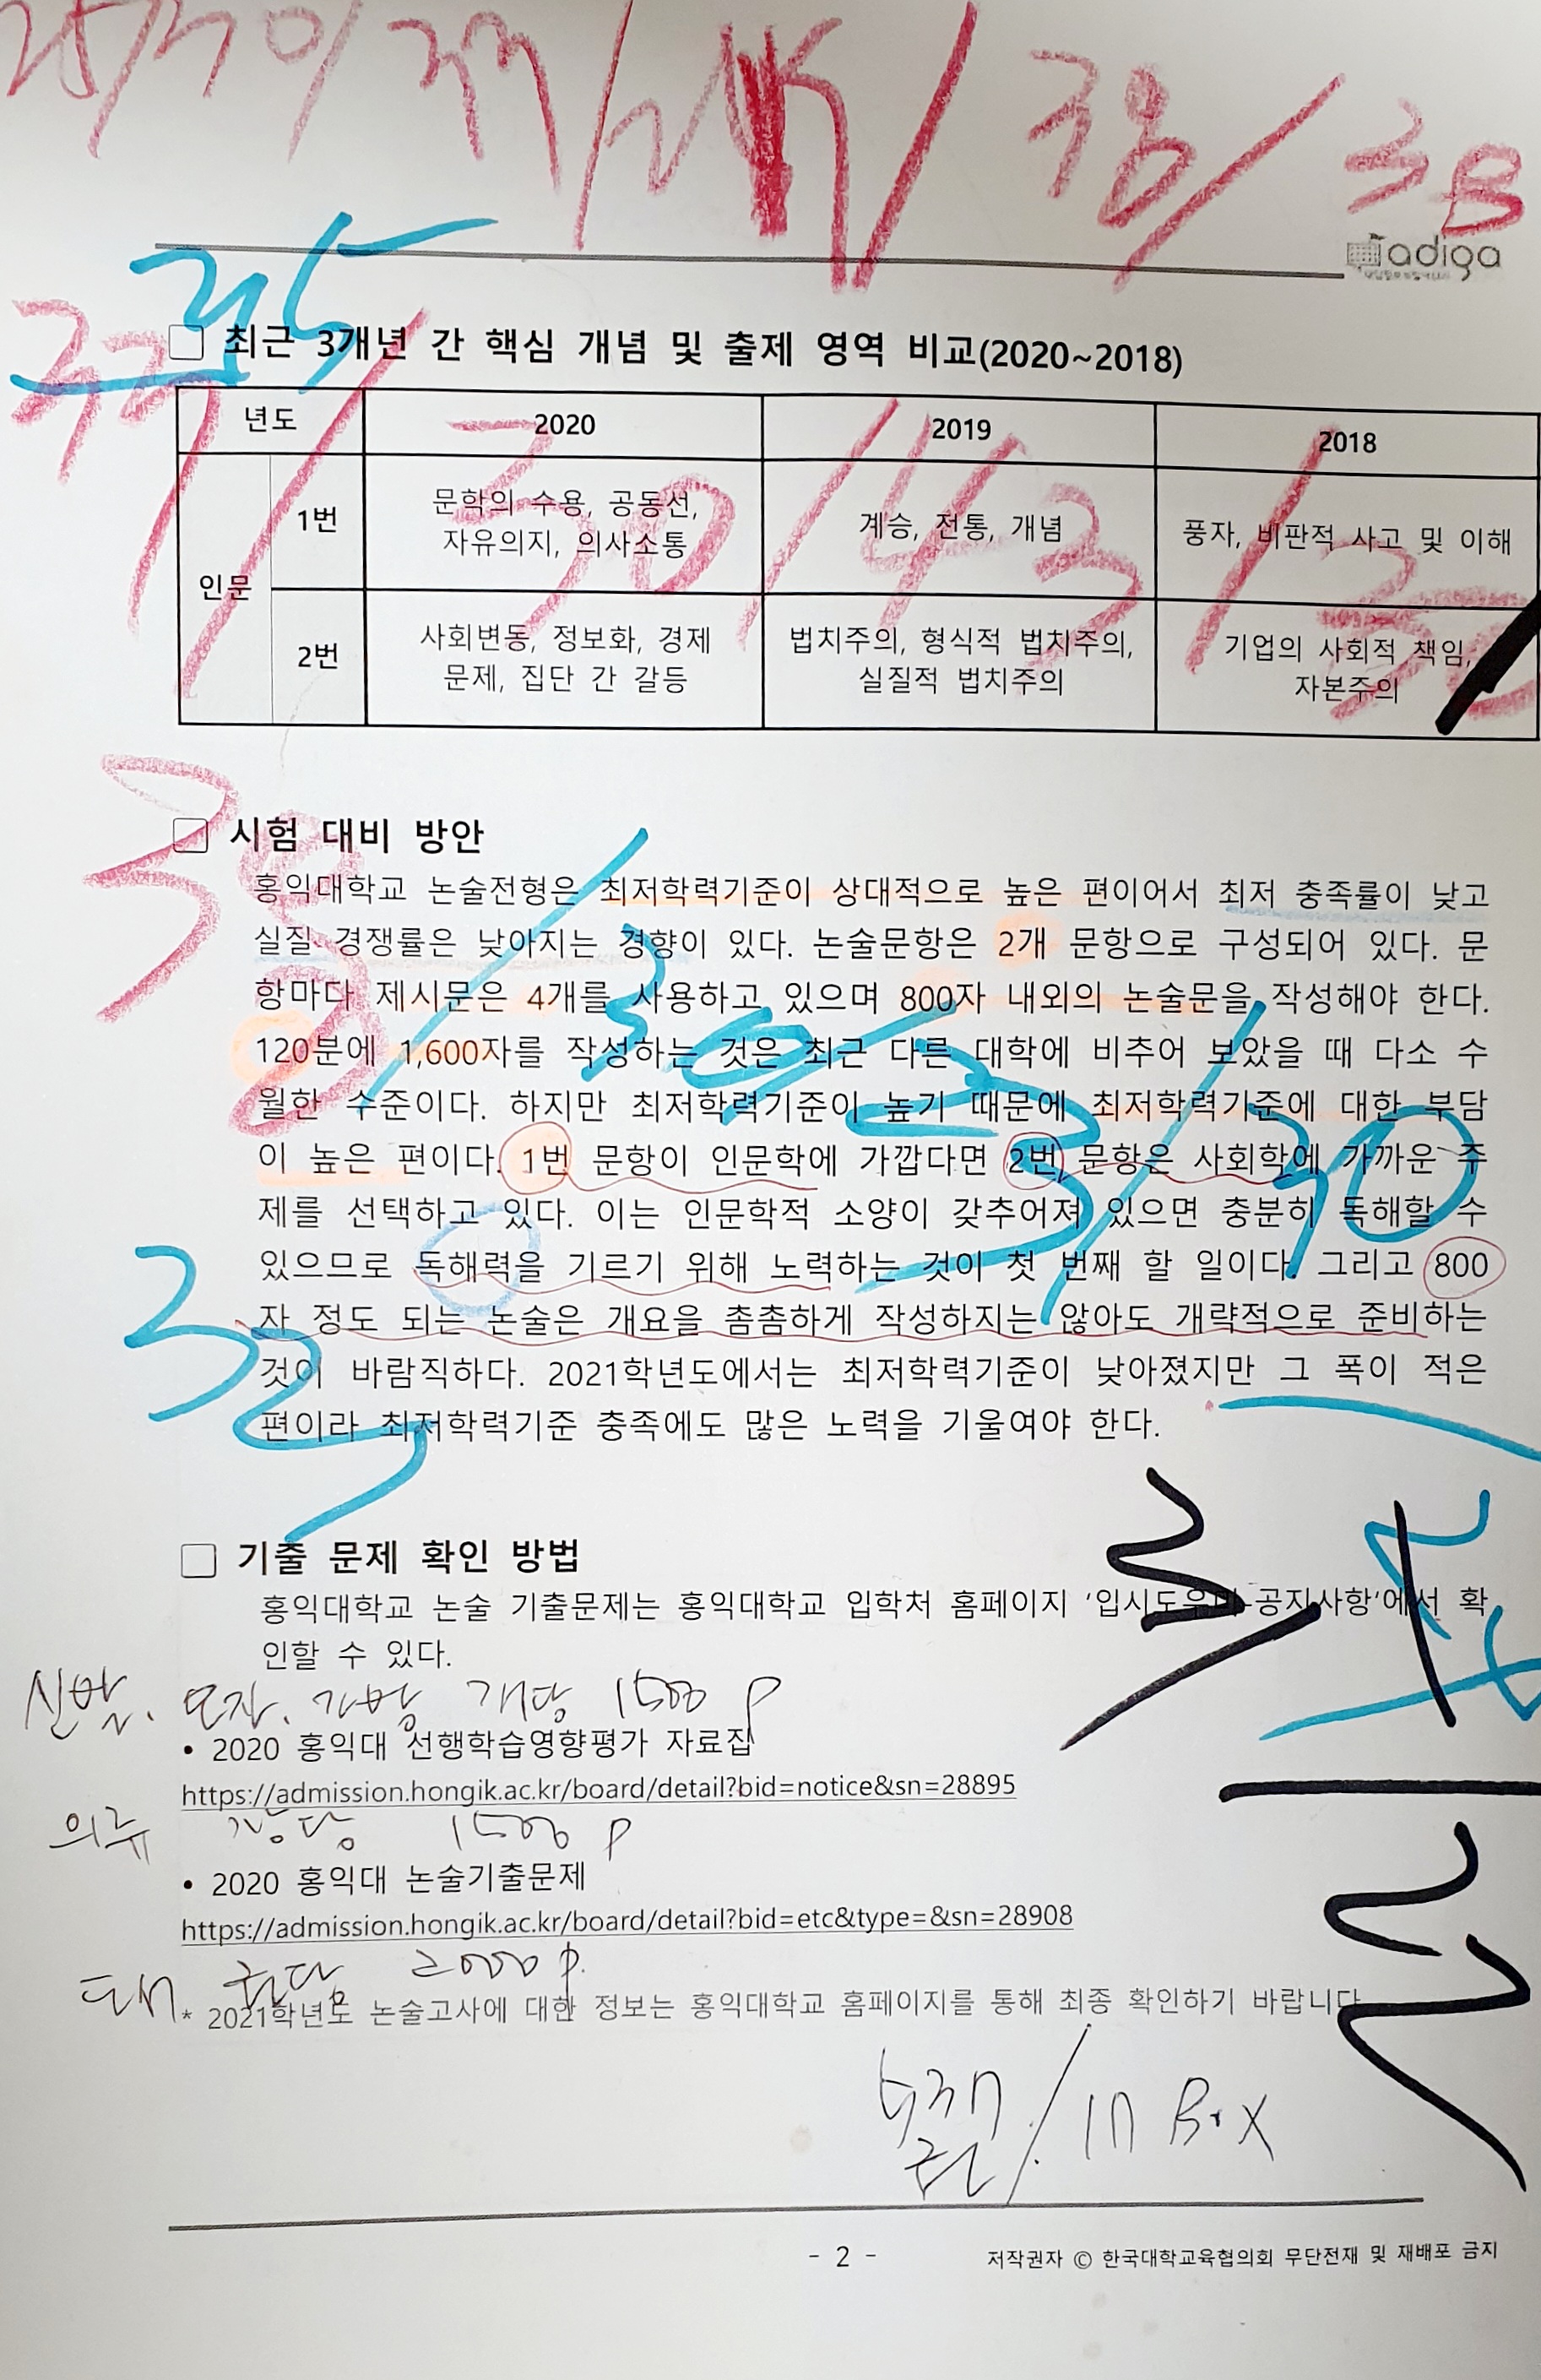 adiga
□ 최근 3개년 간 핵심 개념 및 출제 영역 비교(2020~2018)
년도 2020 2019 2018
인문
1번 문학의 수용, 공동선, 자유의지, 의사소통 계승, 전통, 개념 풍자, 비판적 사고 및 이해
2번 사회변동, 정보화, 경제 문제, 집단 간 갈등 법치주의, 형식적 법치주의, 실질적 법치주의 기업의 사회적 책임, 자본주의
□ 시험 대비 방안
홍익대학교 논술전형은 최저학력기준이 상대적으로 높은 편이어서 최저 충족률이 낮고
실질 경쟁률은 낮아지는 경향이 있다. 논술문항은 2개 문항으로 구성되어 있다. 문
항마다 제시문은 4개를 사용하고 있으며 800자 내외의 논술문을 작성해야 한다.
120분에 1,600자를 작성하는 것은 최근 다른 대학에 비추어 보았을 때 다소 수
월한 수준이다. 하지만 최저학력기준이 높기 때문에 최저학력기준에 대한 부담
이 높은 편이다. 1번 문항이 인문학에 가깝다면 2번 문항은 사회학에 가까운 주
제를 선택하고 있다. 이는 인문학적 소양이 갖추어져 있으면 충분히 독해할 수
있으므로 독해력을 기르기 위해 노력하는 것이 첫 번째 할 일이다. 그리고 800
자 정도 되는 논술은 개요을 촘촘하게 작성하지는 않아도 개략적으로 준비하는
것이 바람직하다. 2021학년도에서는 최저학력기준이 낮아졌지만 그 폭이 적은
편이라 최저학력기준 충족에도 많은 노력을 기울여야 한다.
□ 기출 문제 확인 방법
홍익대학교 논술 기출문제는 홍익대학교 입학처 홈페이지 '입시도우미-공지사항'에서 확
인할 수 있다.
신발. 모자. 가방 개당 1500 P
• 2020 홍익대 선행학습영향평가 자료집
https://admission.hongik.ac.kr/board/detail?bid=notice&sn=28895
의류 장당 1500 P
• 2020 홍익대 논술기출문제
https://admission.hongik.ac.kr/board/detail?bid=etc&type=&sn=28908
도서 권당 2000 P.
* 2021학년도 논술고사에 대한 정보는 홍익대학교 홈페이지를 통해 최종 확인하기 바랍니다
in Box
- 2 -
저작권자 ⓒ 한국대학교육협의회 무단전재 및 재배포 금지